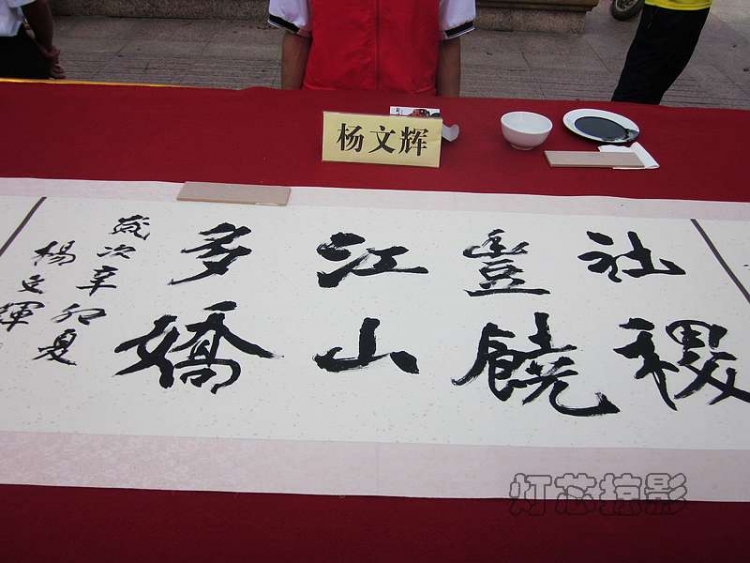 杨文辉
社稷
豐饒
江山
多嬌
歲次辛卯夏
楊文輝
灯芯掠影